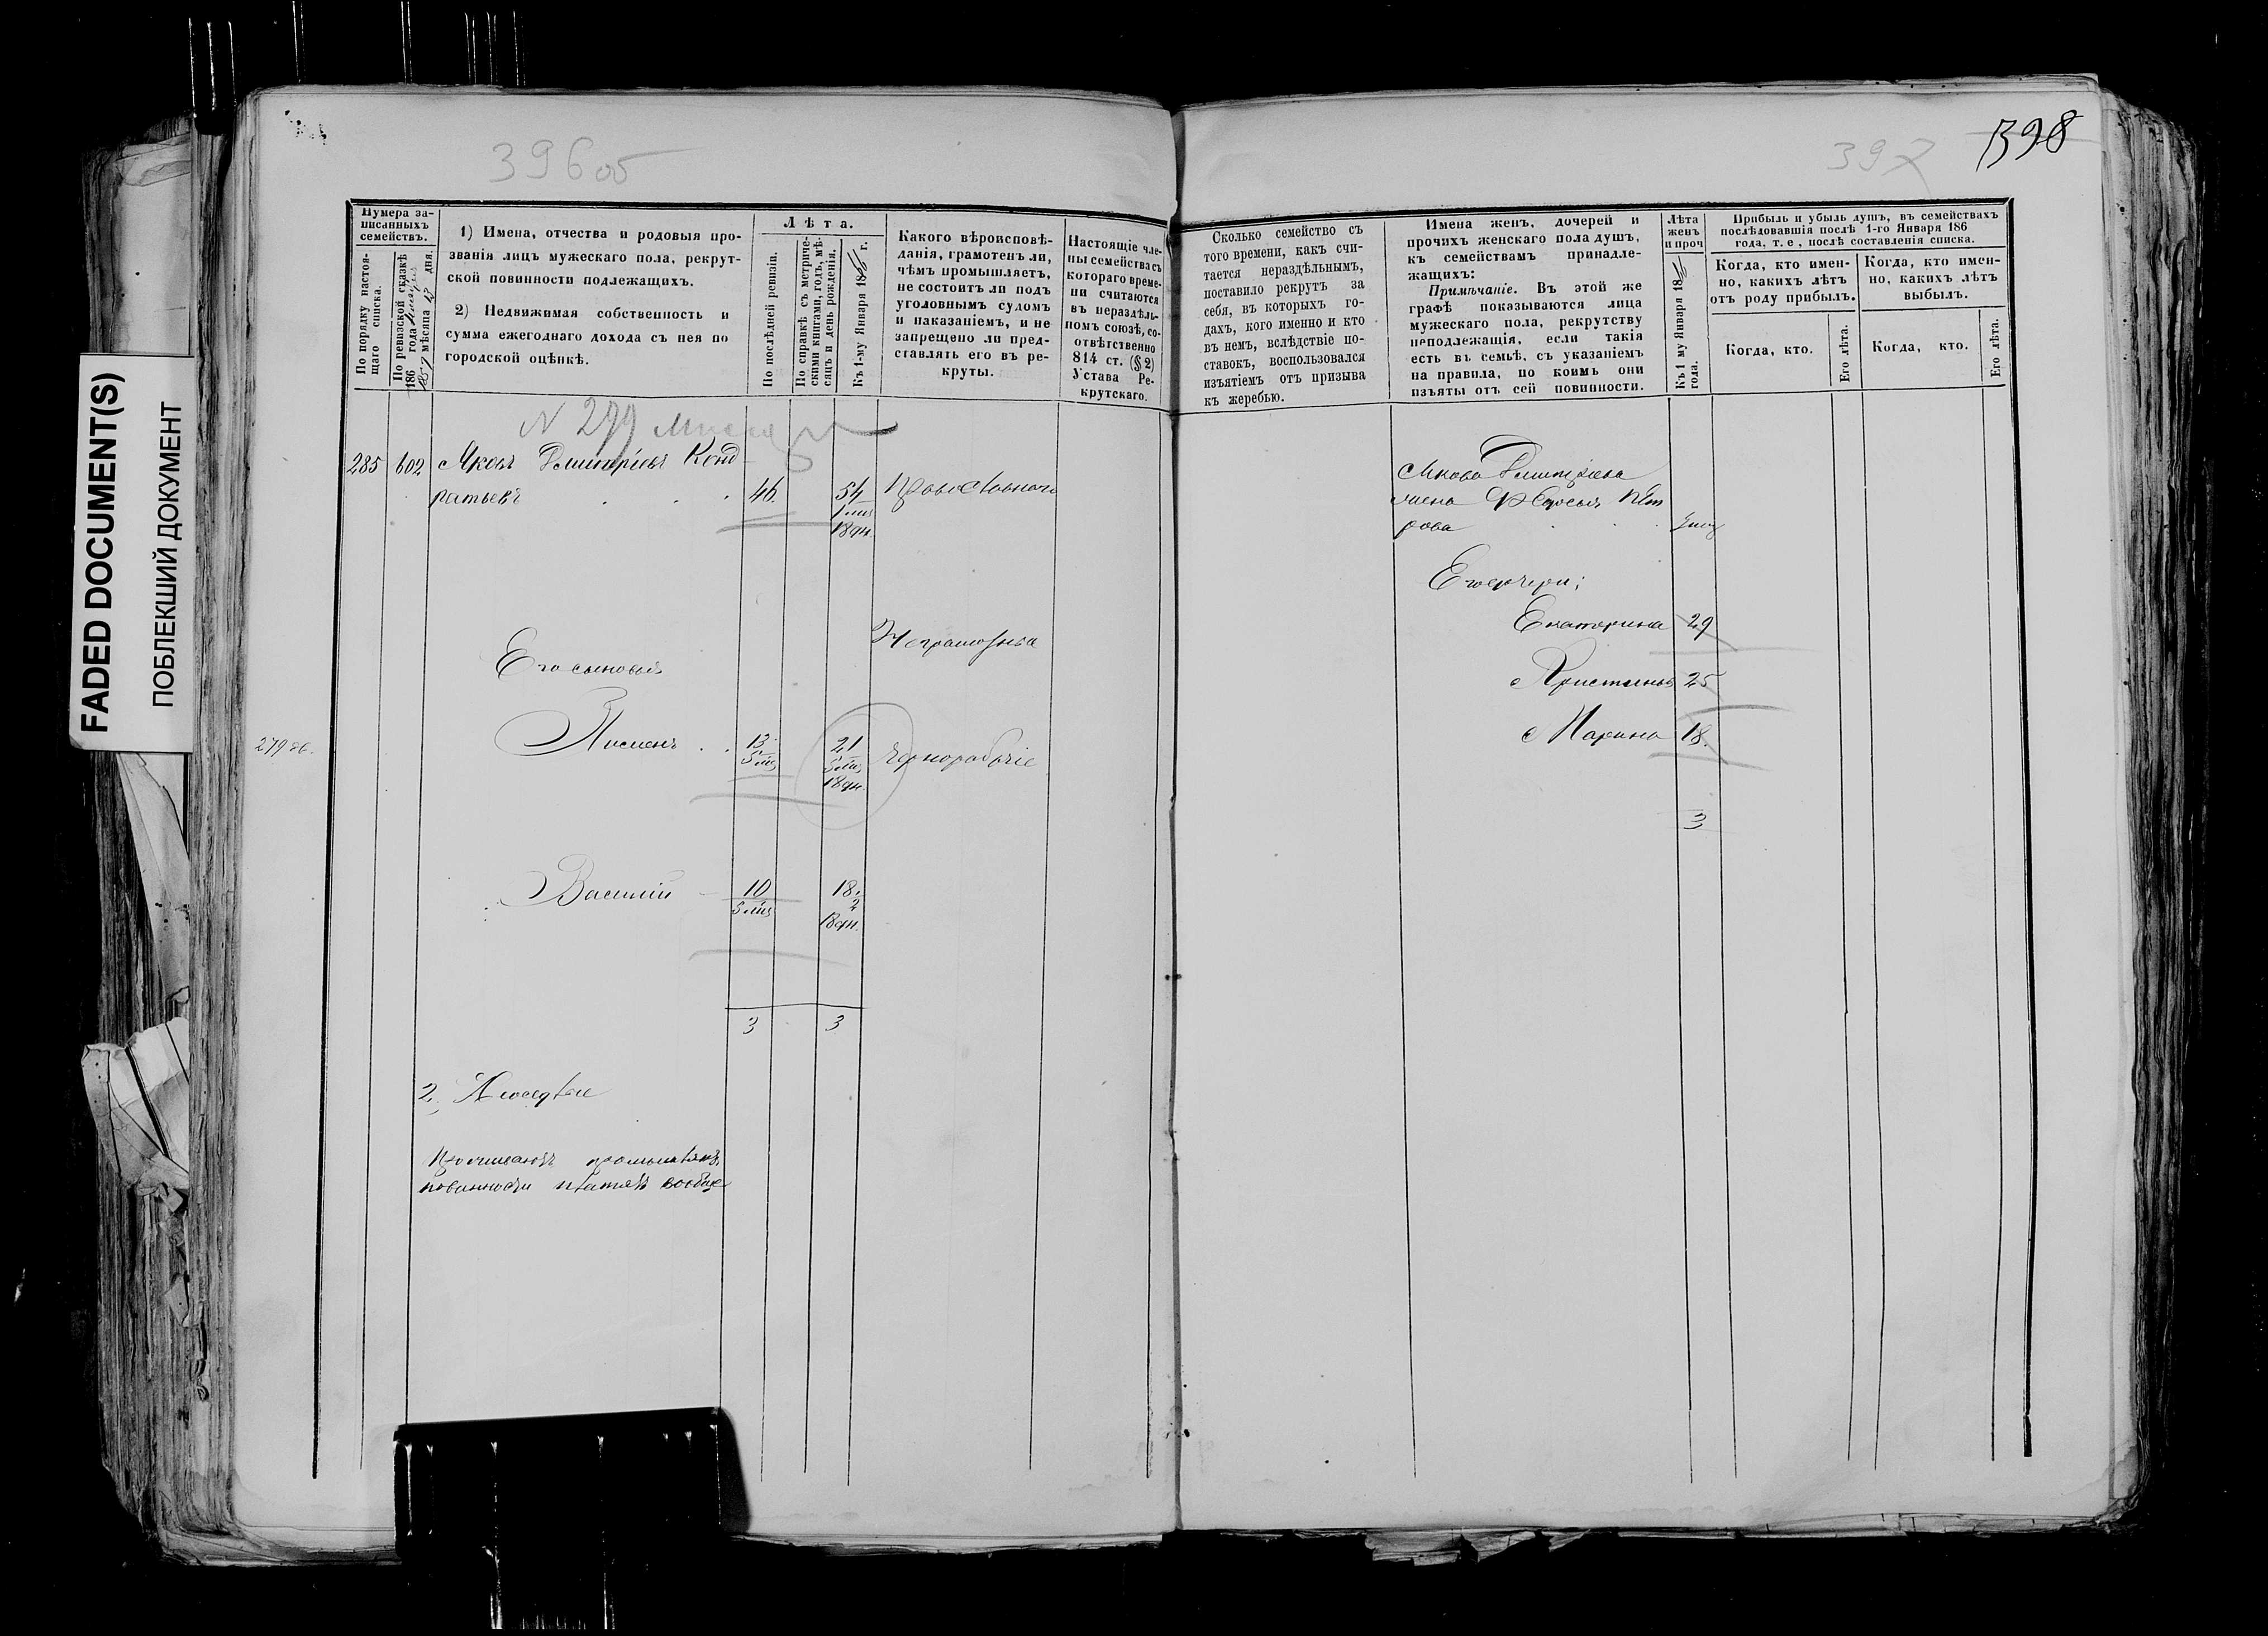 FADED DOCUMENT(S)
ПОБЛЕКШИЙ ДОКУМЕНТ
396 об
Нумера за-
писанныхъ
семействъ.
По порядку настоя-
щаго списка.
По ревизской сказкѣ
186 года мѣсяца дня.
1857
1) Имена, отчества и родовыя про-
званія лицъ мужескаго пола, рекрут-
ской повинности подлежащихъ.
2) Недвижимая собственность и
сумма ежегоднаго дохода съ нея по
городской оцѣнкѣ.
Лѣта.
По послѣдней ревизіи.
По справкѣ съ метриче-
скими книгами, годъ, мѣ-
сяцъ и день рожденія.
Къ 1-му Января 186 г.
Какого вѣроисповѣ-
данія, грамотенъ ли,
чѣмъ промышляетъ,
не состоитъ ли подъ
уголовнымъ судомъ
и наказаніемъ, и не
запрещено ли пред-
ставлять его въ ре-
круты.
Настоящіе чле-
ны семейства съ
котораго време-
ни считаются
въ нераздѣль-
номъ союзѣ, со-
отвѣтственно
814 ст. (§ 2)
Устава Ре-
крутскаго.
N 279
285 602 Яковъ Дмитріевъ Конд
ратьевъ 46 54 Православнаго
18 дн.
Неграмотны
Его сыновья
279
Пименъ 13 21 Чернорабочіе
5 мѣс 5 мѣс
18 дн.
Василій 10 18
5 мѣс 2
18 дн.
3 3
2,
повинности платятъ вообще
397
398
Сколько семейство съ
того времени, какъ счи-
тается нераздѣльнымъ,
поставило рекрутъ за
себя, въ которыхъ го-
дахъ, кого именно и кто
въ немъ, вслѣдствіе по-
ставокъ, воспользовался
изъятіемъ отъ призыва
къ жеребью.
Имена женъ, дочерей и
прочихъ женскаго пола душъ,
къ семействамъ принадле-
жащихъ:
Примѣчаніе. Въ этой же
графѣ показываются лица
мужескаго пола, рекрутству
неподлежащія, если такія
есть въ семьѣ, съ указаніемъ
на правила, по коимъ они
изъяты отъ сей повинности.
Лѣта
женъ
и проч
Къ 1 му Января 18
года.
Прибыль и убыль душъ, въ семействахъ
послѣдовавшія послѣ 1-го Января 186
года, т. е, послѣ составленія списка.
Когда, кто имен-
но, какихъ лѣтъ
отъ роду прибылъ.
Когда, кто.
Его лѣта.
Когда, кто имен-
но, какихъ лѣтъ
выбылъ.
Когда, кто.
Его лѣта.
Якова Дмитріева
жена Ефросья Пет
рова
Его дочери;
Екатерина 29
Христинья 25
Марина 18.
3